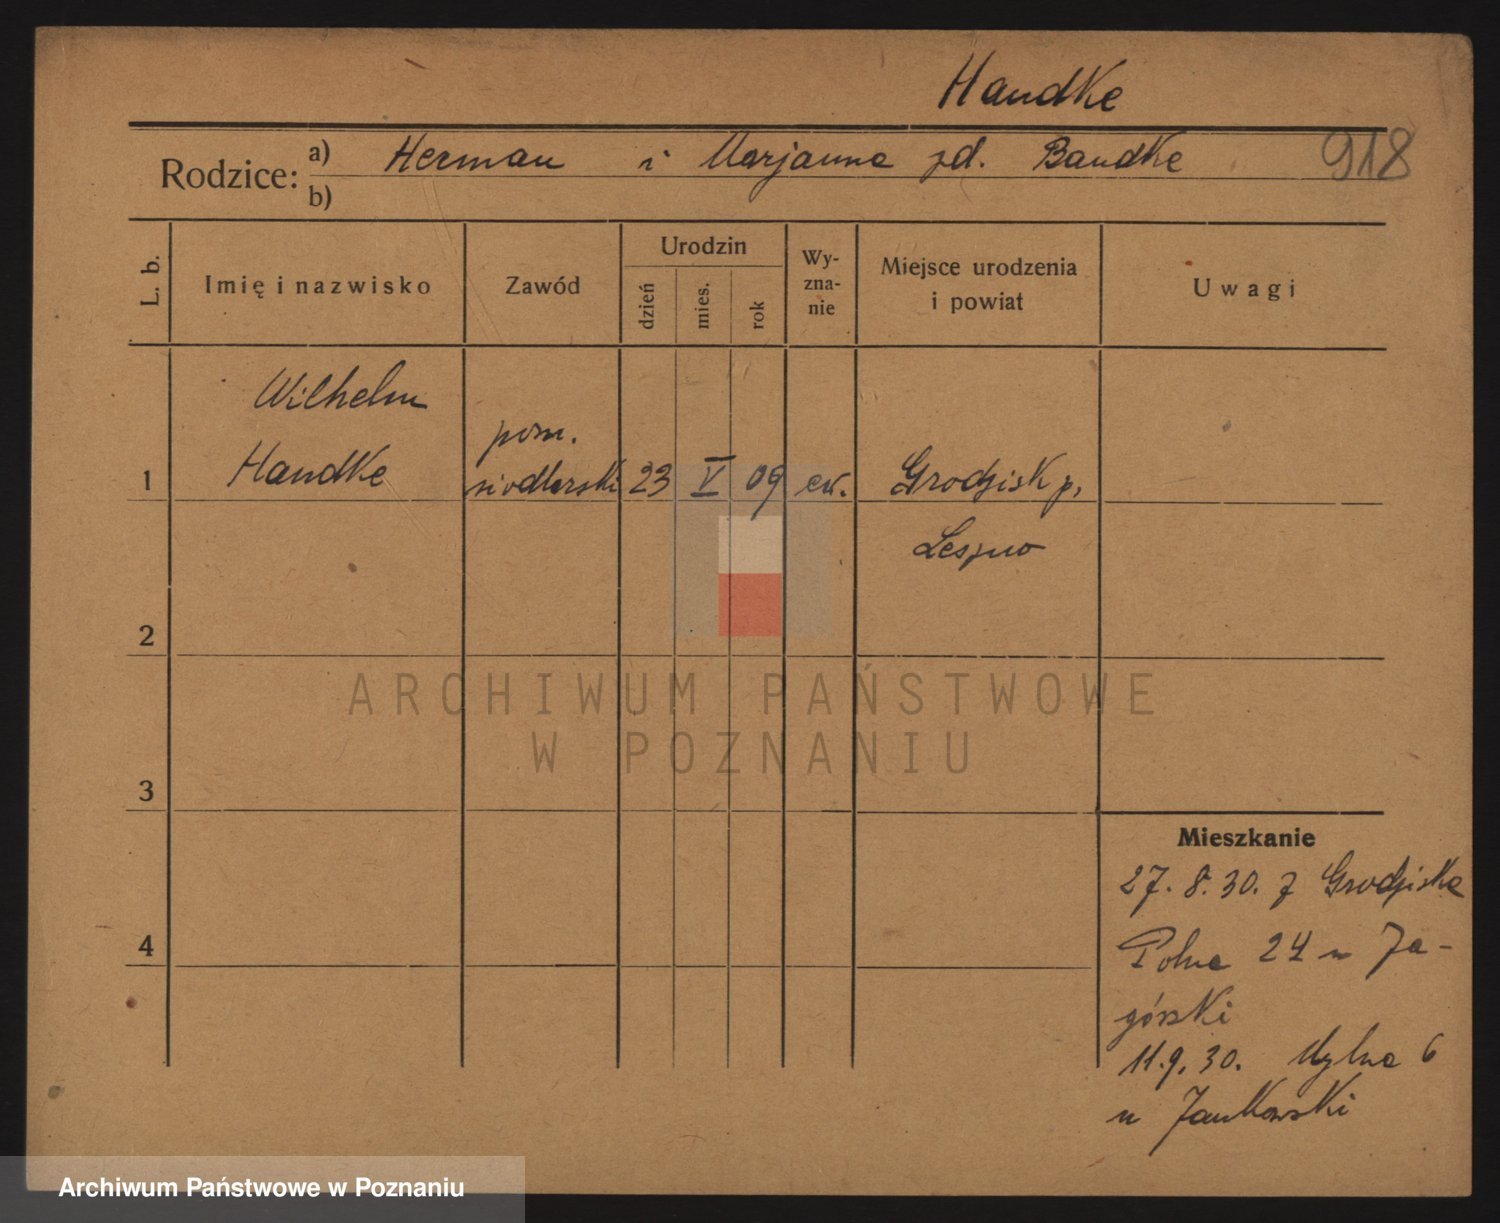 Handke
Rodzice: a) Herman i Marjanna zd. Bandke 918
b)
L. b. Imię i nazwisko Zawód Urodzin dzień mies. rok Wy-zna-nie Miejsce urodzenia i powiat Uwagi
Wilhelm
pom.
1 Handke siodlarski 23 V 09 ew. Grodzisk p.
Leszno
2
3
4
Mieszkanie
27. 8. 30. z Grodziska
Polna 24 u Ja-
górski
11. 9. 30. Mylna 6
u Jankowski
ARCHIWUM PAŃSTWOWE
W POZNANIU
Archiwum Państwowe w Poznaniu